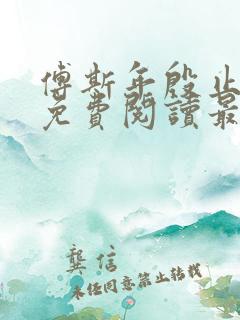 傅斯年殷止
免費閱讀最
龔信
未经同意禁止转载